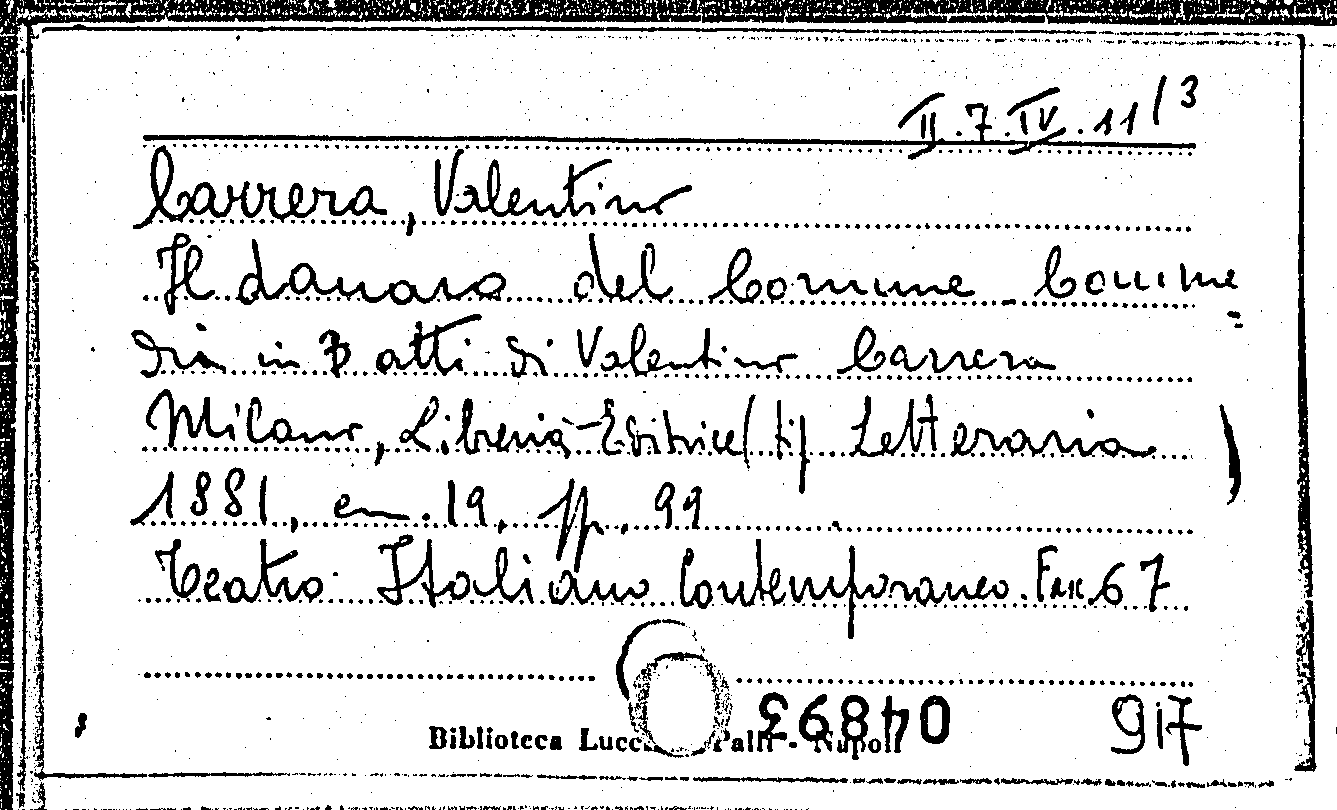 II.7.IV.11/3
Carrera, Valentino
Il danaro del Comune - Comme
dia in 3 atti di Valentino Carrera
Milano, Libreria Editrice (tip Letteraria)
1881, cm. 19, pp. 99
Teatro Italiano Contemporaneo. Fasc. 67
04893
917
Biblioteca Lucchesi Palli - Napoli